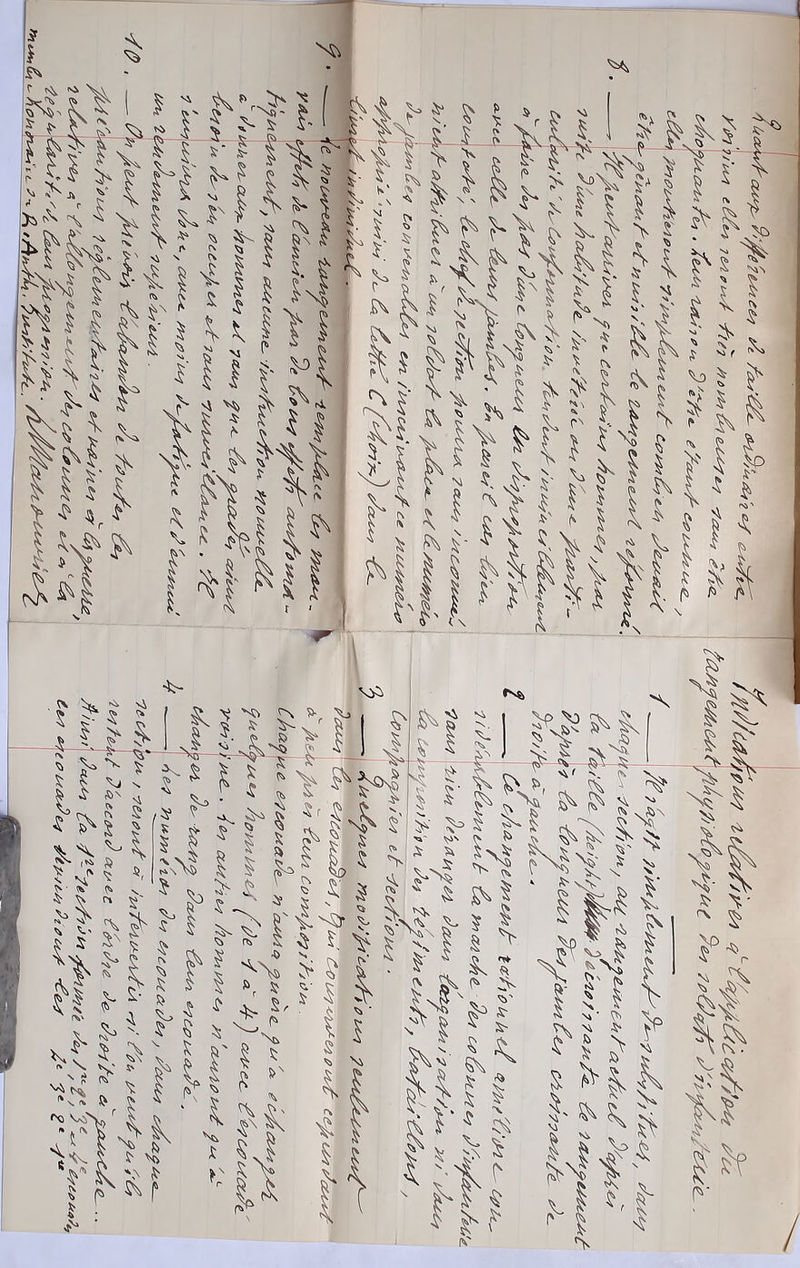 Indications relatives à l'application du
rangement physiologique des soldats d'infanterie.
1 — Il s'agit simplement de substituer, dans
chaque section, au rangement actuel d'après
la taille (height) décroissante le rangement
d'après la longueur des jambes croissante de
droite à gauche.
2 — Ce changement rationnel améliore con-
sidérablement la marche des colonnes d'infanterie
sans rien déranger dans l'organisation ni dans
la composition des régiments, bataillons,
compagnies et sections.
3 — Quelques modifications seulement
dans les escouades, qui conserveront cependant
à peu près leur composition.
Chaque escouade n'aura guère qu'à échanger
quelques hommes (de 1 à 4) avec l'escouade
voisine. Les autres hommes n'auront qu'à
changer de rang dans leur escouade.
4 — Les numéros des escouades, dans chaque
section, seront à intervertir si l'on veut qu'ils
restent d'accord avec l'ordre de droite à gauche..
Ainsi dans la 1re section formée des 1re 2e 3e 4e escouades
ces escouades deviendront les 4e 3e 2e 1re
Quant aux différences de taille ordinaires entre
voisins elles seront très nombreuses sans être
choquantes. Leur raison d'être étant connue,
elles montreront simplement combien devait
être gênant et nuisible le rangement réformé.
8. — Il peut arriver que certains hommes, par
suite d'une habitude invétérée ou d'une parti-
cularité de conformation, tendent invinciblement
à faire des pas d'une longueur en disproportion
avec celle de leurs jambes. En pareil cas, bien
constaté, le chef de section pourra sans inconvé-
nient attribuer à un soldat la place et le numéro
de jambes convenables en inscrivant ce numéro
approprié suivi de la lettre C (choix) dans le
livret individuel.
9. — Le nouveau rangement remplace les mau-
vais effets de l'ancien par de bons effets automa-
tiquement, sans aucune instruction nouvelle
à donner aux hommes et sans que les gradés aient
besoin de s'en occuper et sans surveillance. Il
s'ensuivra donc, avec moins de fatigue et d'ennui
un rendement supérieur.
10. — On peut prévoir l'abandon de toutes les
précautions réglementaires et vaines à la guerre,
relatives à l'allongement des colonnes et à la
régularité de leur progression. L. Manouvrier
membre honoraire du R. Anthr. Institute.